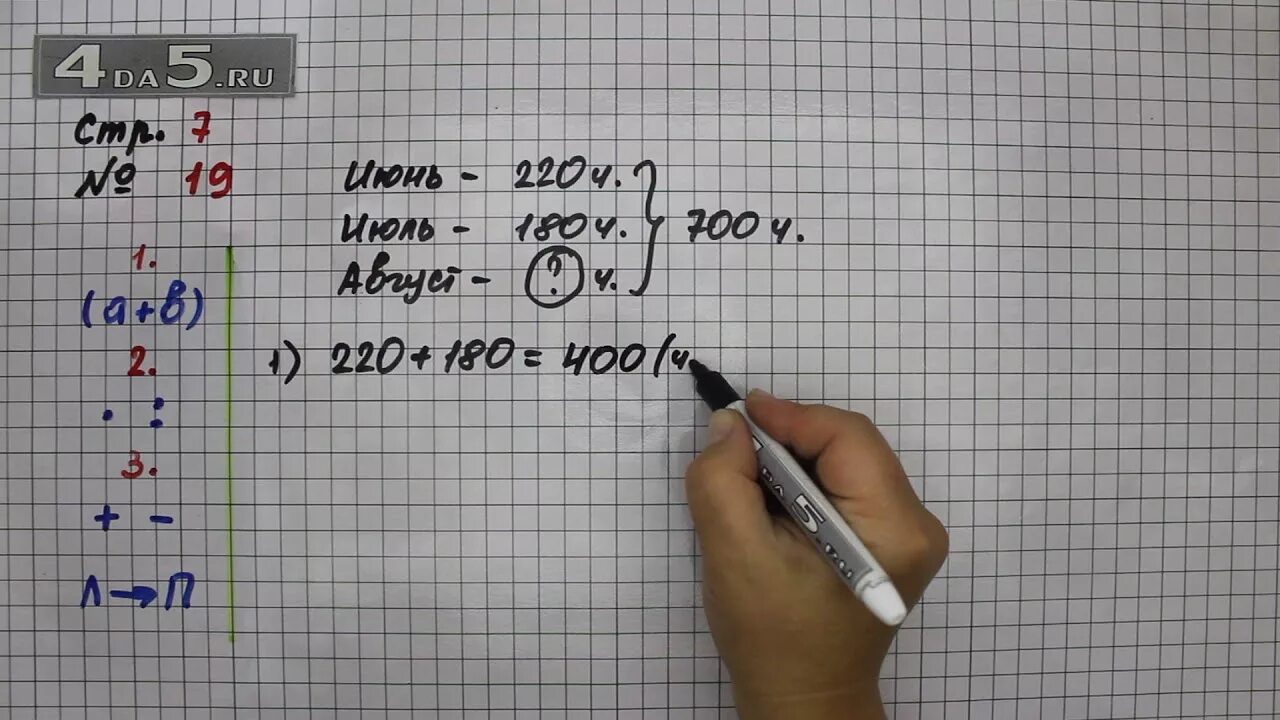 4DA5.RU
Стр. 7
№ 19
Июнь - 220 ч.
Июль - 180 ч.
Август - ? ч.
700 ч.
1.
(а+в)
2.
· :
3.
+ -
Л→П
1) 220+180=400(ч
5.RU